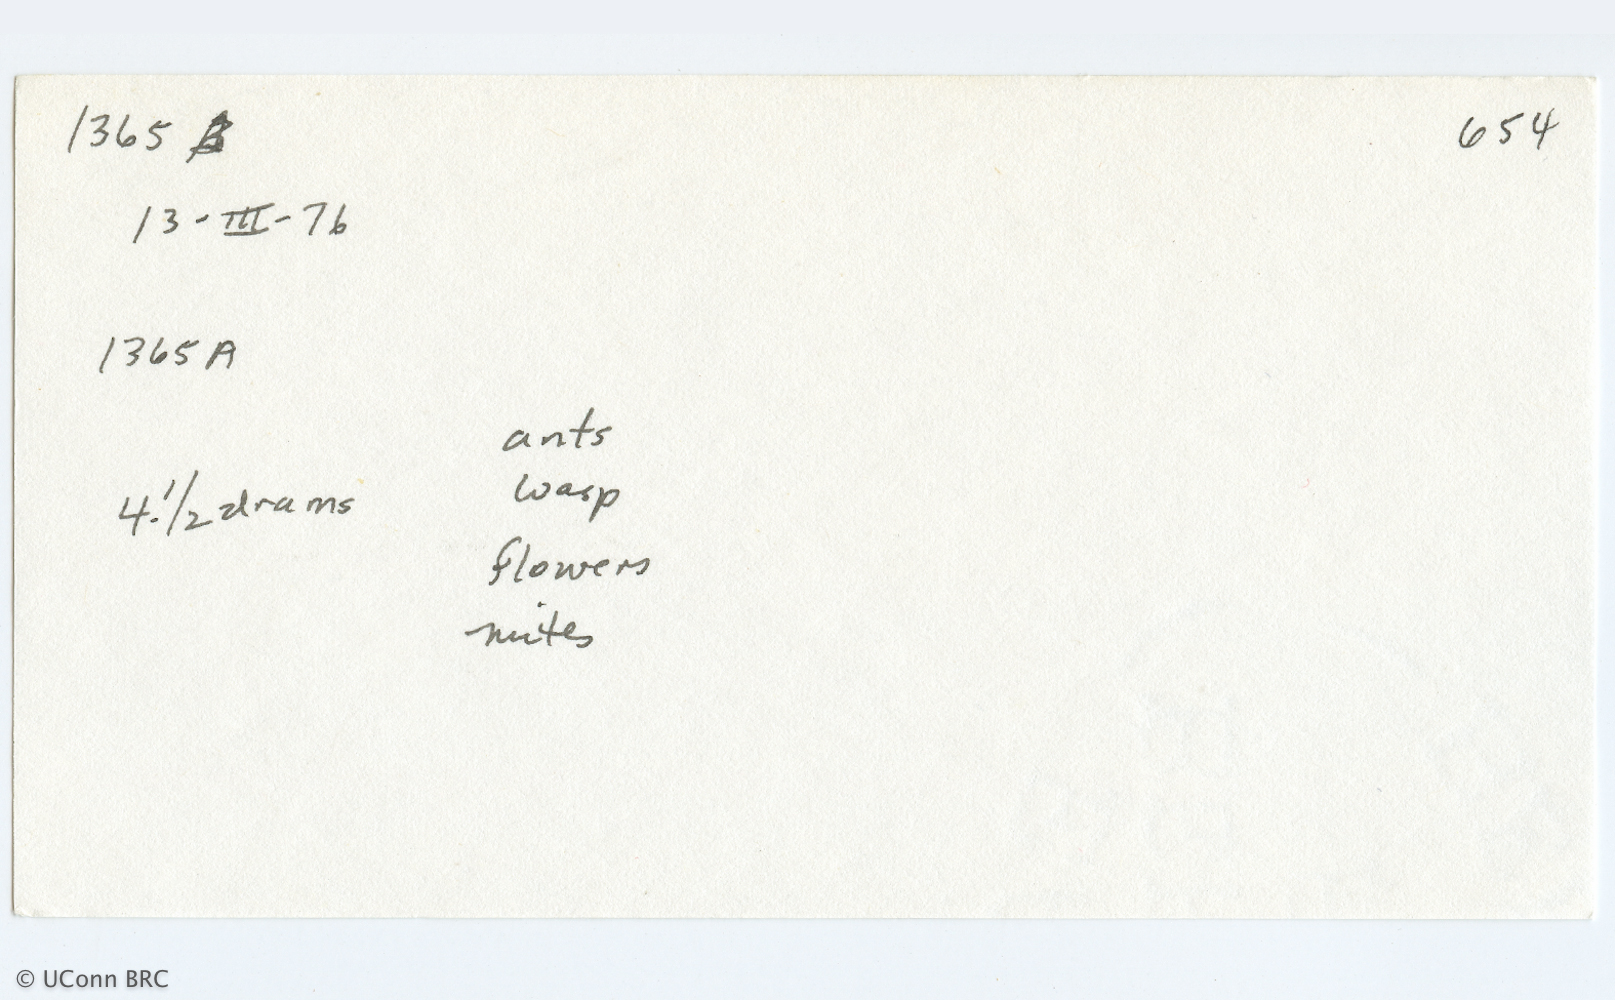 1365 B
654
13-III-76
1365 A
ants
4.1/2 drams
wasp
flowers
mites
© UConn BRC